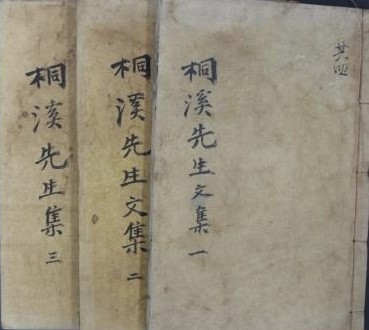 共四
桐溪先生文集 一
桐溪先生文集 二
桐溪先生集 三